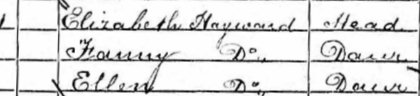 Elizabeth Hayward Head
Fanny Do Daur
Ellen Do Daur